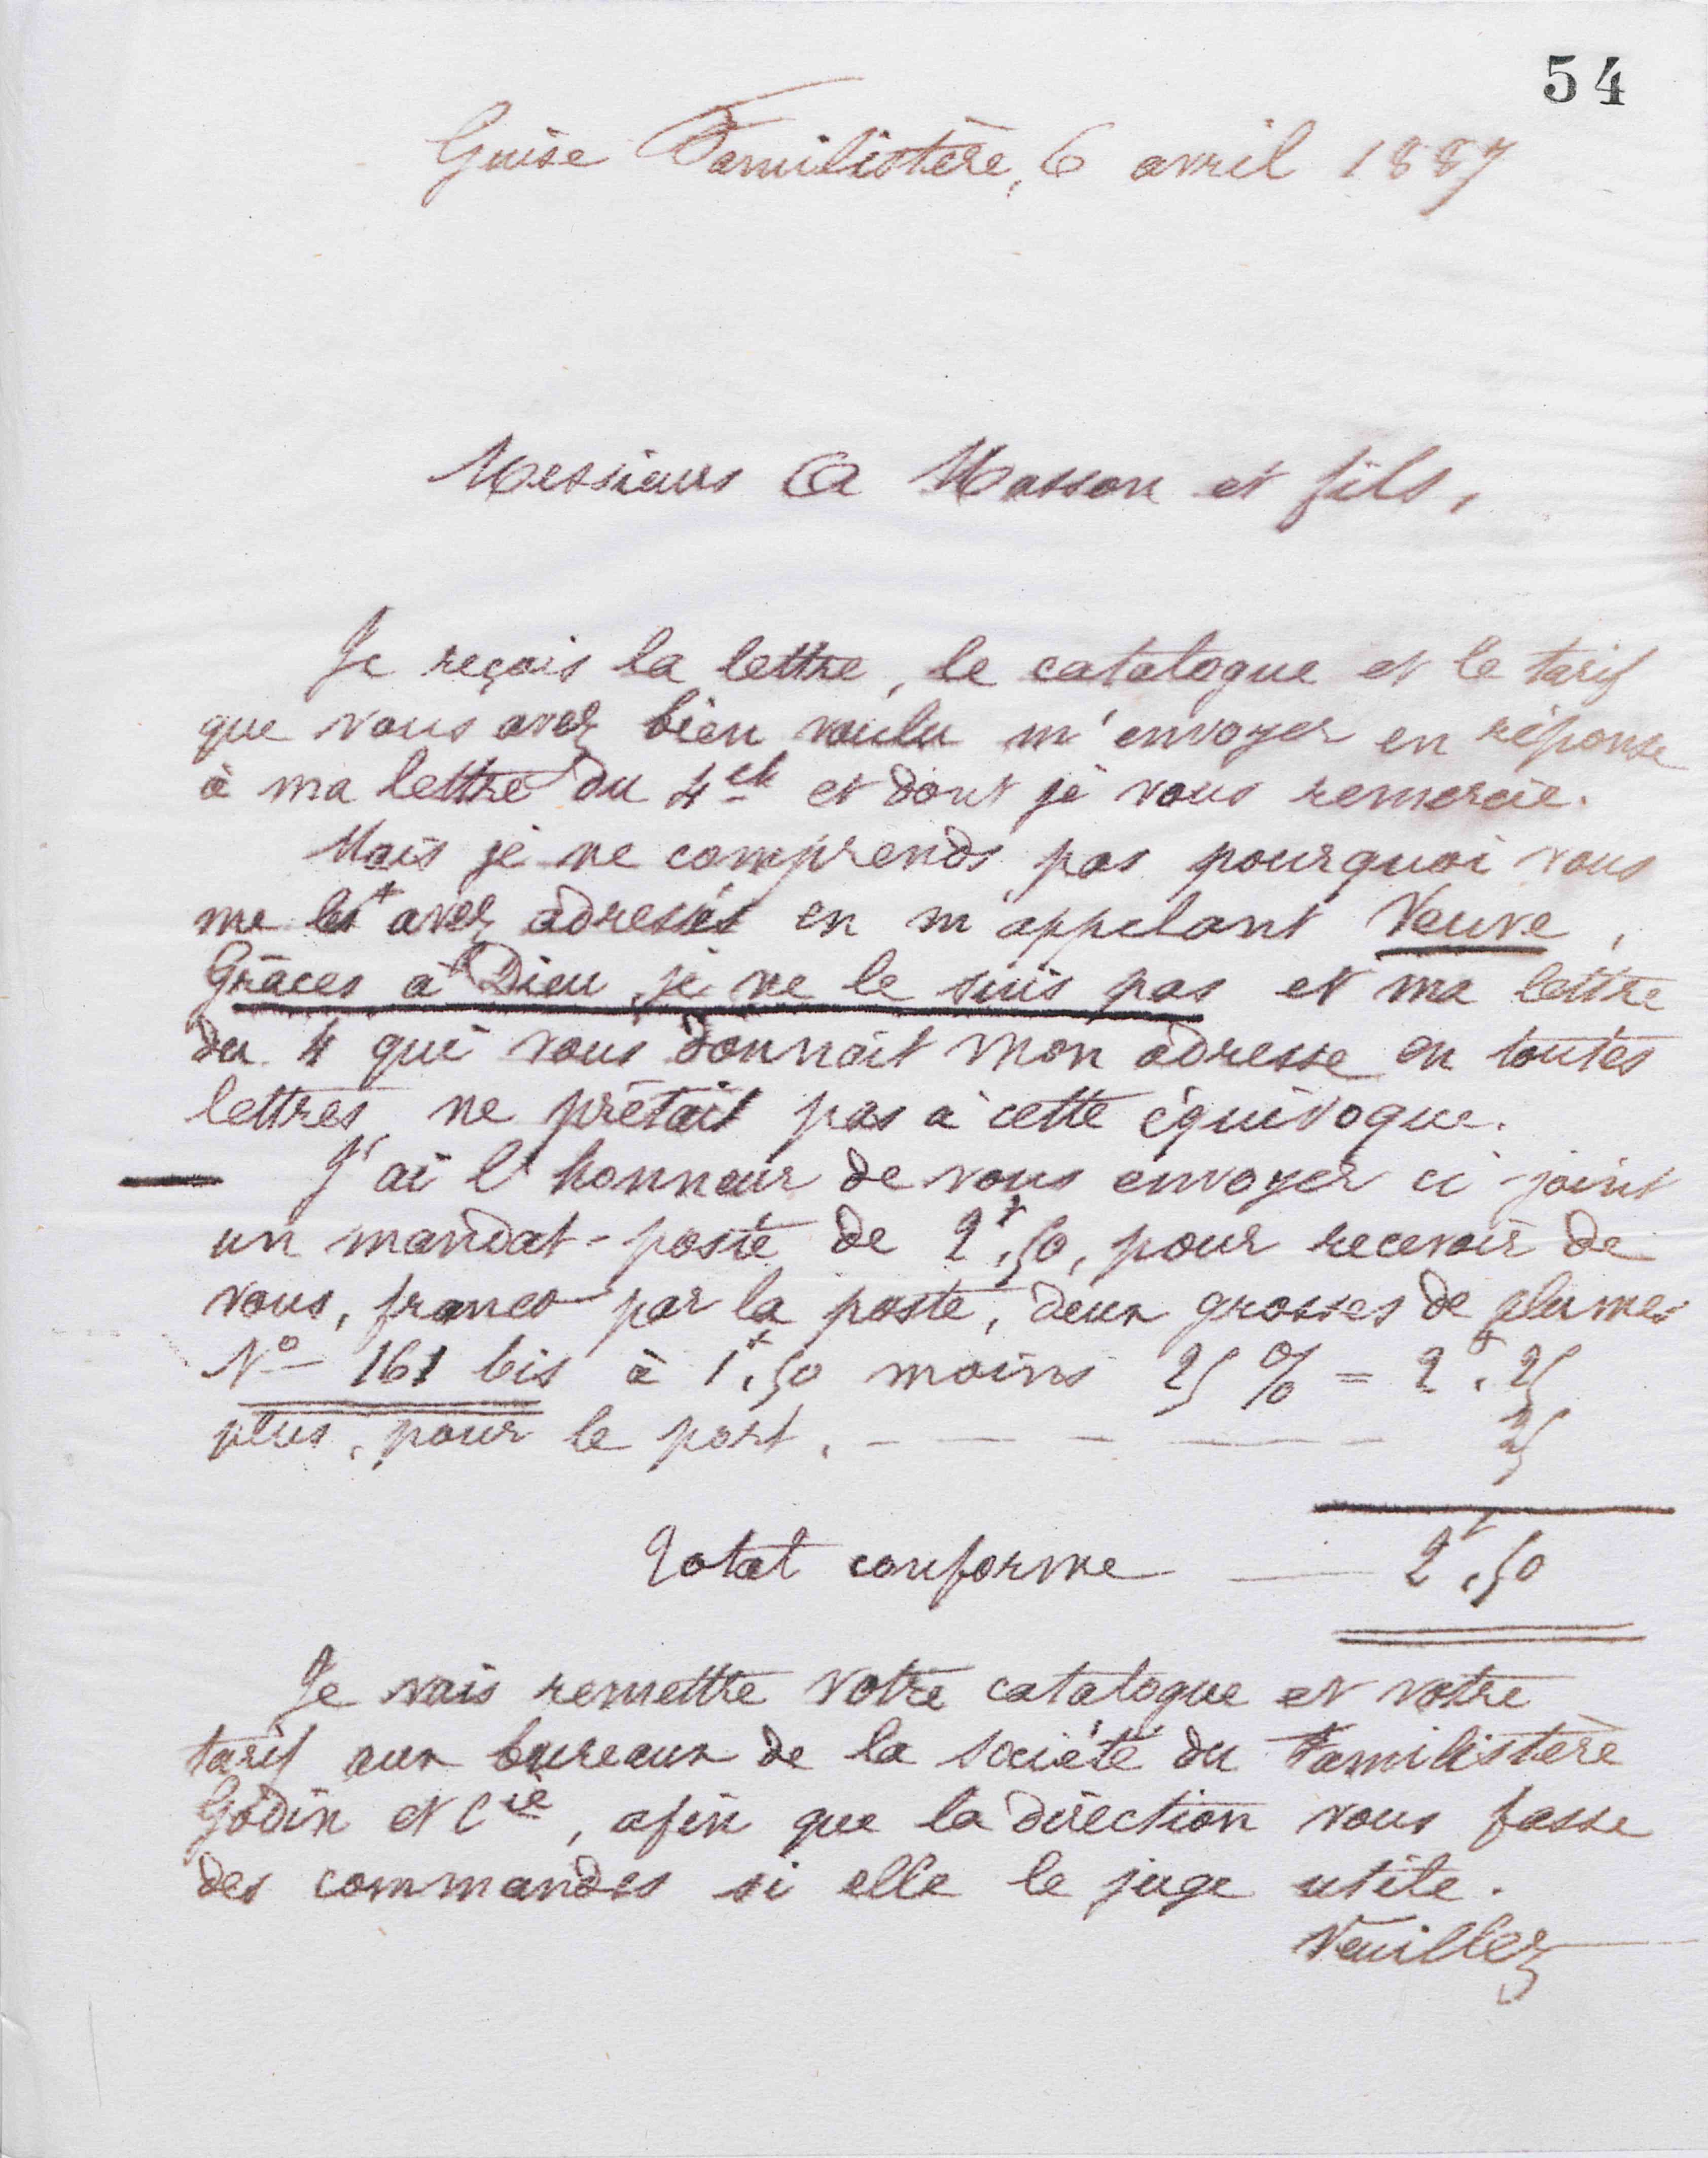 54
Guise Familistère, 6 avril 1887
Messieurs A Masson et fils,
Je reçois la lettre, le catalogue et le tarif
que vous avez bien voulu m'envoyer en réponse
à ma lettre du 4 et dont je vous remercie.
Mais je ne comprends pas pourquoi vous
me les avez adressés en m'appelant Veuve,
Grâces à Dieu, je ne le suis pas et ma lettre
du 4 qui vous donnait mon adresse en toutes
lettres, ne prêtait pas à cette équivoque.
J'ai l'honneur de vous envoyer ci-joint
un mandat-poste de 2f,50, pour recevoir de
vous, franco par la poste, deux grosses de plumes
No 161 bis à 1f,50 moins 25 % = 2f,25
plus, pour le port, - — - — - 25
Total conforme — 2f,50
Je vais remettre votre catalogue et votre
tarif aux bureaux de la société du Familistère
Godin et Cie, afin que la direction vous fasse
des commandes si elle le juge utile.
Veuillez